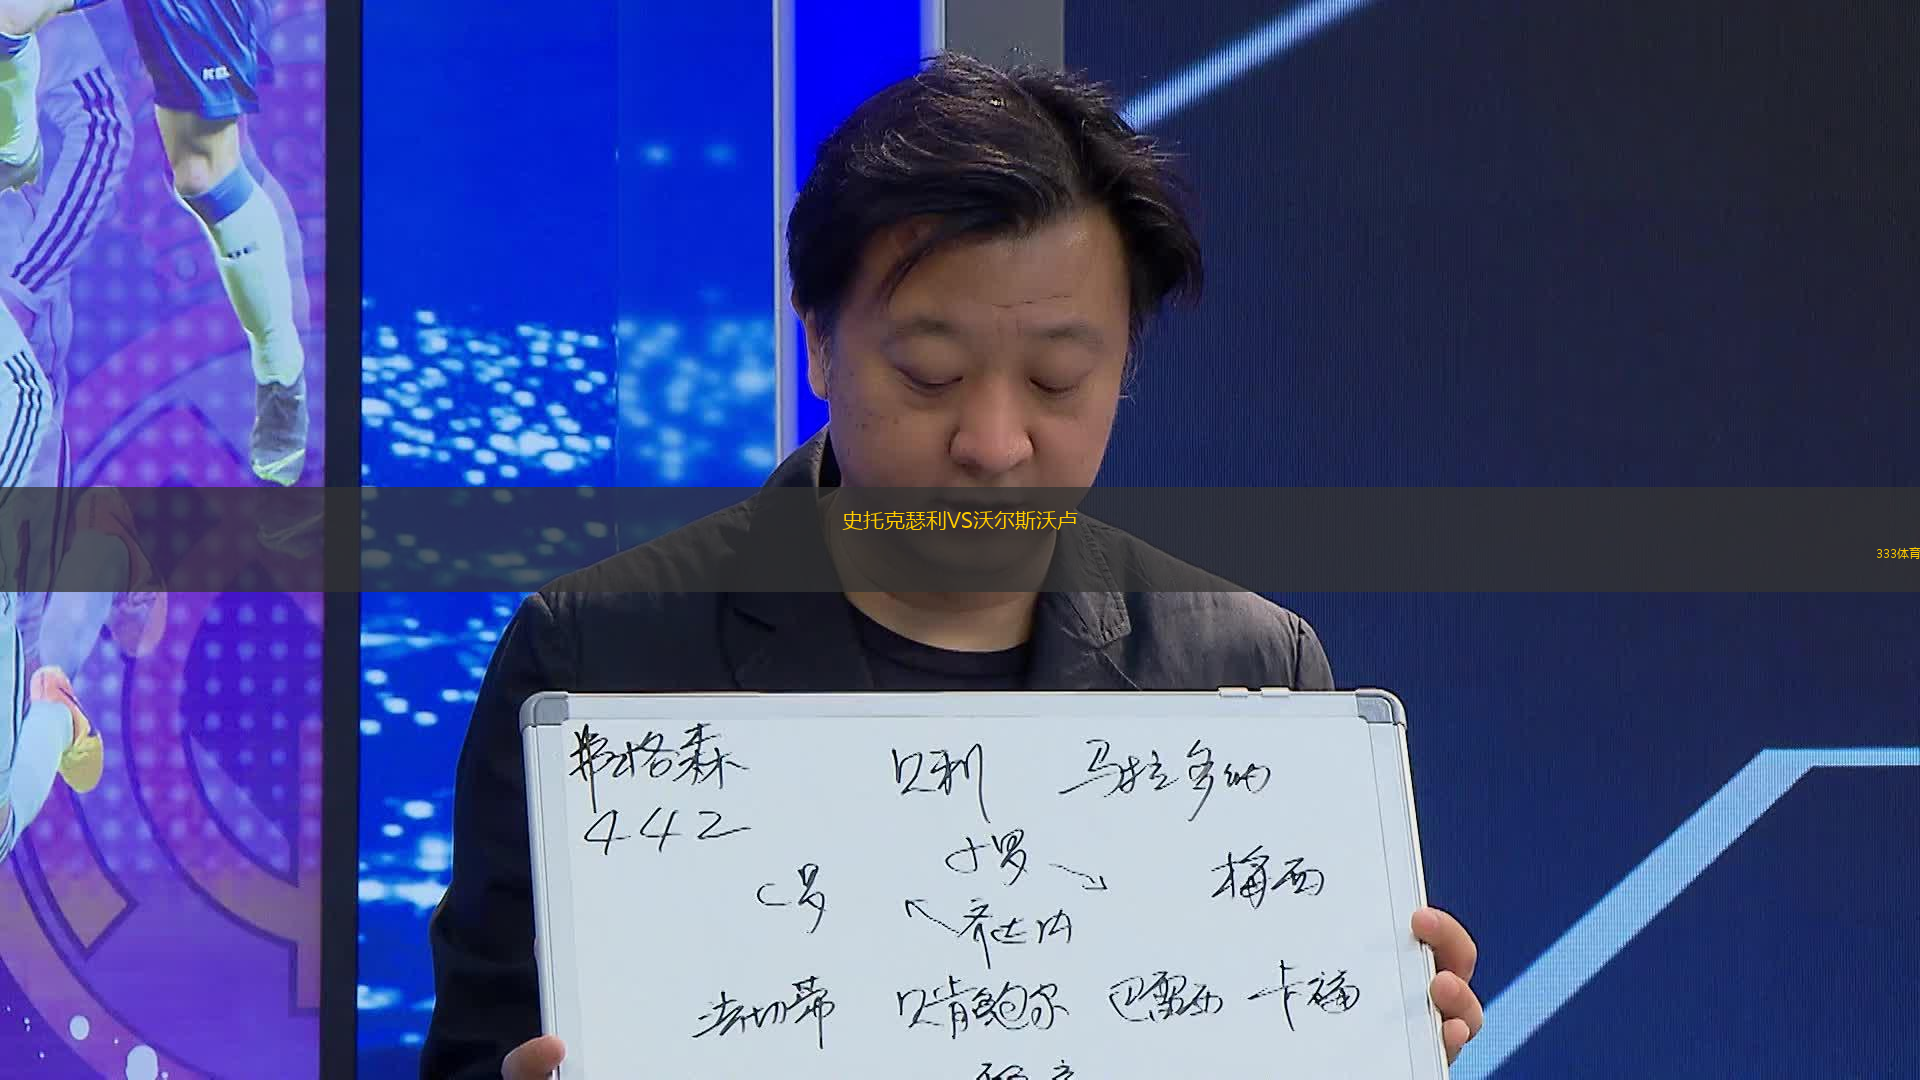 KEL
史托克瑟利VS沃尔斯沃卢
333体育
弗格森 贝利 马拉多纳
442
小罗
C罗 梅西
齐达内
法切蒂 贝肯鲍尔 巴雷西 卡福